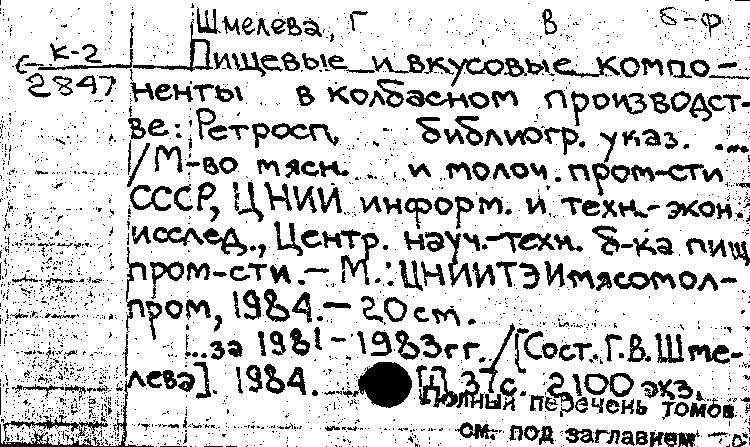 Шмелева, Г В б-ф
К-2
Пищевые и вкусовые компо-
2847
ненты в колбасном производст-
ве: Ретросп. библиогр. указ. ...
/М-во мясн. и молоч. пром-сти
СССР, ЦНИИ информ. и техн.-экон.
исслед., Центр. науч.-техн. б-ка пищ
пром-сти.— М.: ЦНИИТЭИмясомол-
пром, 1984.— 20 см.
...за 1981-1983гг. /[Сост. Г.В. Шме-
лева]. 1984. [Д 37с. 2100 экз.
Полный перечень томов
см. под заглавием